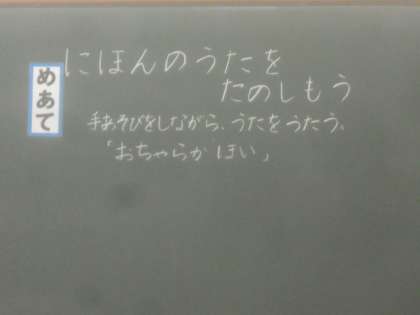 めあて
にほんのうたを
たのしもう
手あそびをしながら、うたをうたう。
「おちゃらかほい」